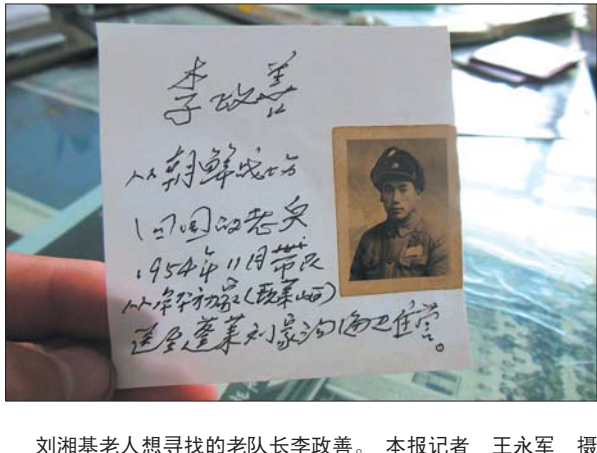 李政善
从朝鲜战场
回国的老兵
1954年11月带民
从牟平初家(现莱山)
送至蓬莱刘家沟海卫住营。
刘湘基老人想寻找的老队长李政善。 本报记者 王永军 摄